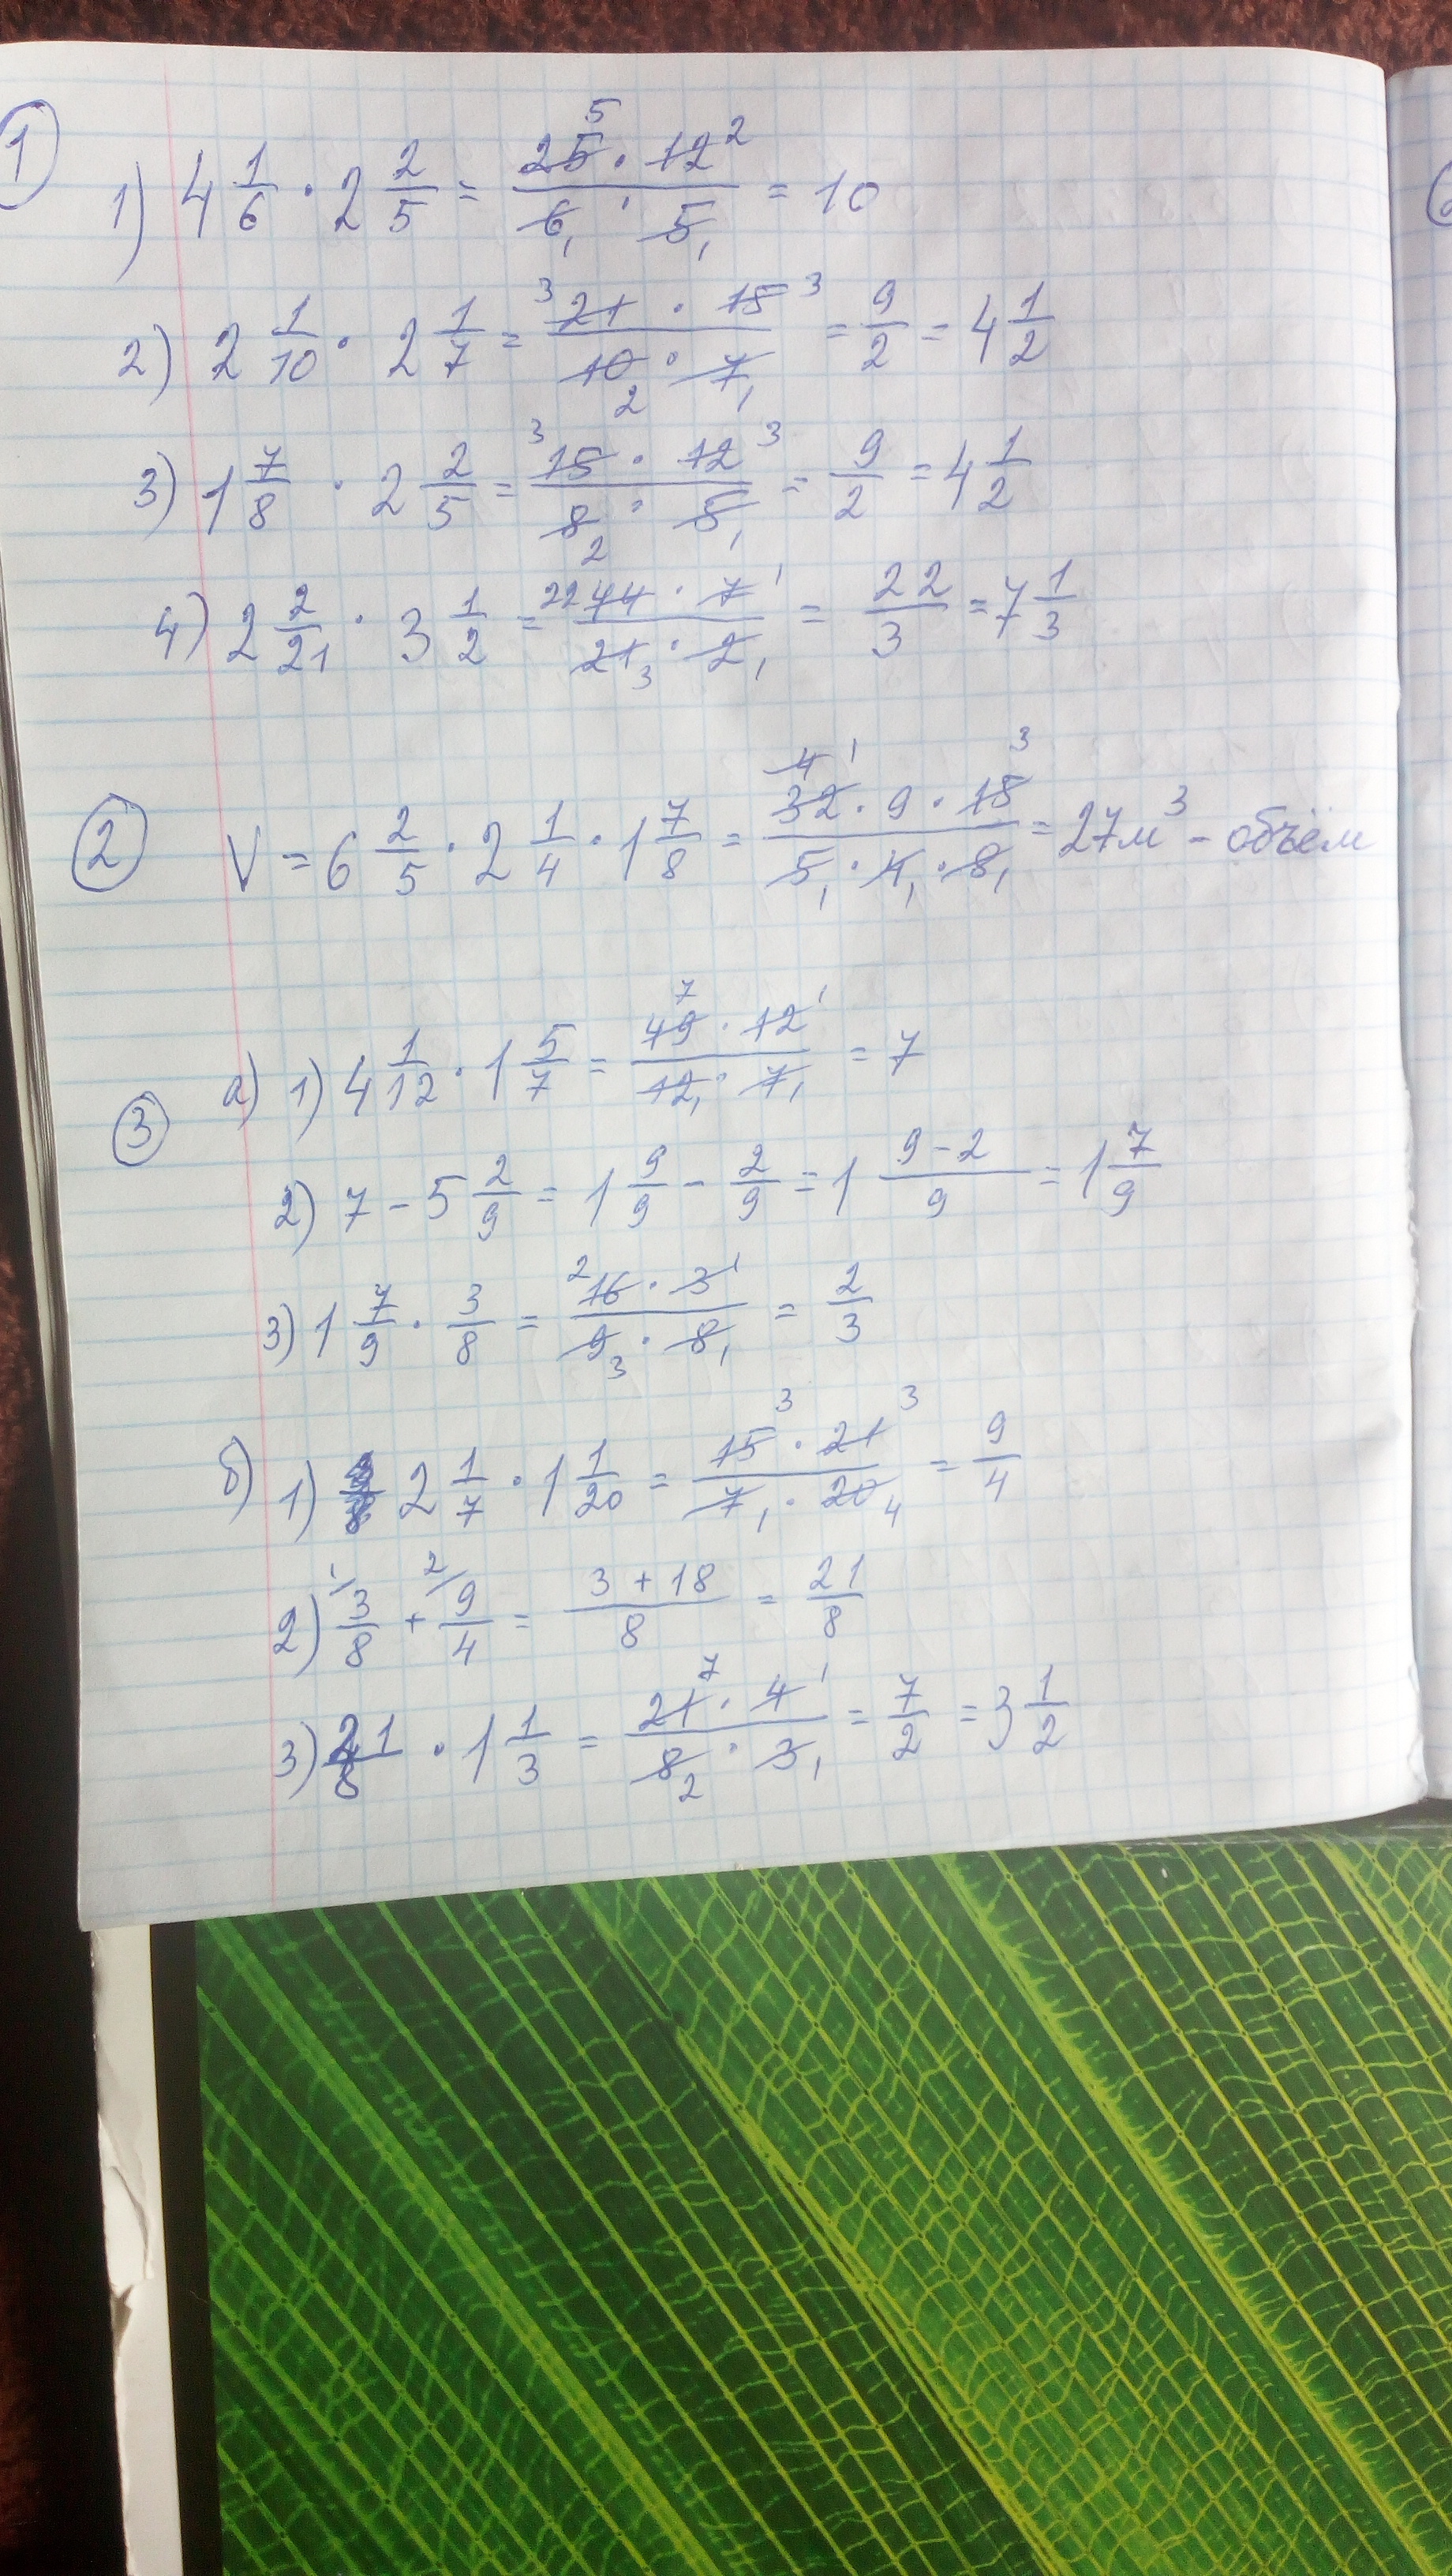 1
1) 4 1/6 · 2 2/5 = 25 5 · 12 2 / 6 1 · 5 1 = 10
2) 2 1/10 · 2 1/7 = 3 21 · 15 3 / 10 2 · 7 1 = 9/2 = 4 1/2
3) 1 7/8 · 2 2/5 = 3 15 · 12 3 / 8 2 · 5 1 = 9/2 = 4 1/2
4) 2 2/21 · 3 1/2 = 22 44 · 7 1 / 21 3 · 2 1 = 22/3 = 7 1/3
2 V = 6 2/5 · 2 1/4 · 1 7/8 = 4 1 32 · 9 · 15 3 / 5 1 · 4 1 · 8 1 = 27 м³ - объём
3 а) 1) 4 1/12 · 1 5/7 = 49 7 · 12 1 / 12 1 · 7 1 = 7
2) 7 - 5 2/9 = 1 9/9 - 2/9 = 1 9-2/9 = 1 7/9
3) 1 7/9 · 3/8 = 2 16 · 3 1 / 9 3 · 8 1 = 2/3
б) 1) 2 1/7 · 1 1/20 = 15 3 · 21 3 / 7 1 · 20 4 = 9/4
2) 1/ 3/8 + 2/ 9/4 = 3 + 18 / 8 = 21/8
3) 21/8 · 1 1/3 = 21 7 · 4 1 / 8 2 · 3 1 = 7/2 = 3 1/2